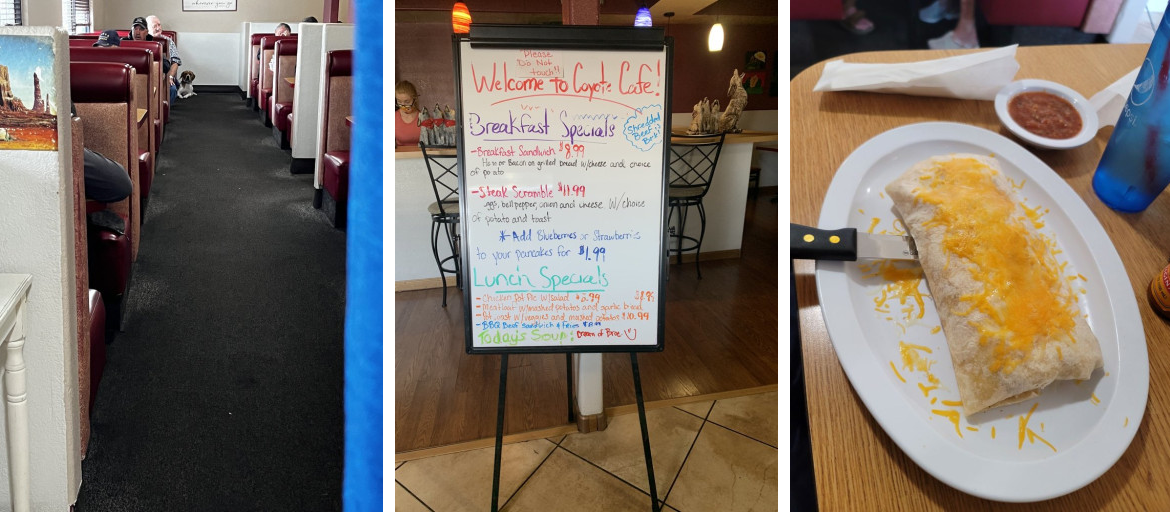 Please
Do Not
touch!!
Welcome to Coyote Cafe!
Breakfast Specials
Shredded
Beef is
Back!
-Breakfast Sandwich $8.99
Ham or Bacon on grilled bread w/cheese and choice
of potato
-Steak Scramble $11.99
eggs, bell pepper, onion and cheese w/choice
of potato and toast
*-Add Blueberries or Strawberries
to your pancakes for $1.99
Lunch Specials
-Chicken Pot Pie w/salad
-Meatloaf w/mashed potatoes and garlic bread
w/veggies and mashed potatoes $10.99
-BBQ Beef Sandwich & fries
Today's Soup: Cream of Broc